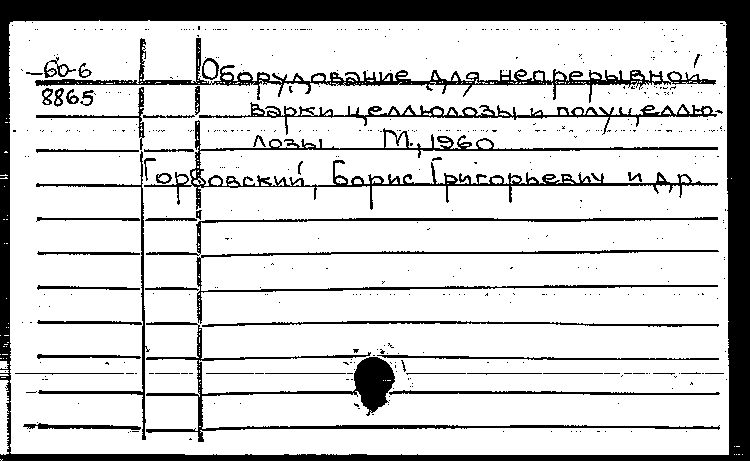 60-6
8865
Оборудование для непрерывной
варки целлюлозы и полуцеллю-
лозы. М., 1960
Горбовский, Борис Григорьевич и др.